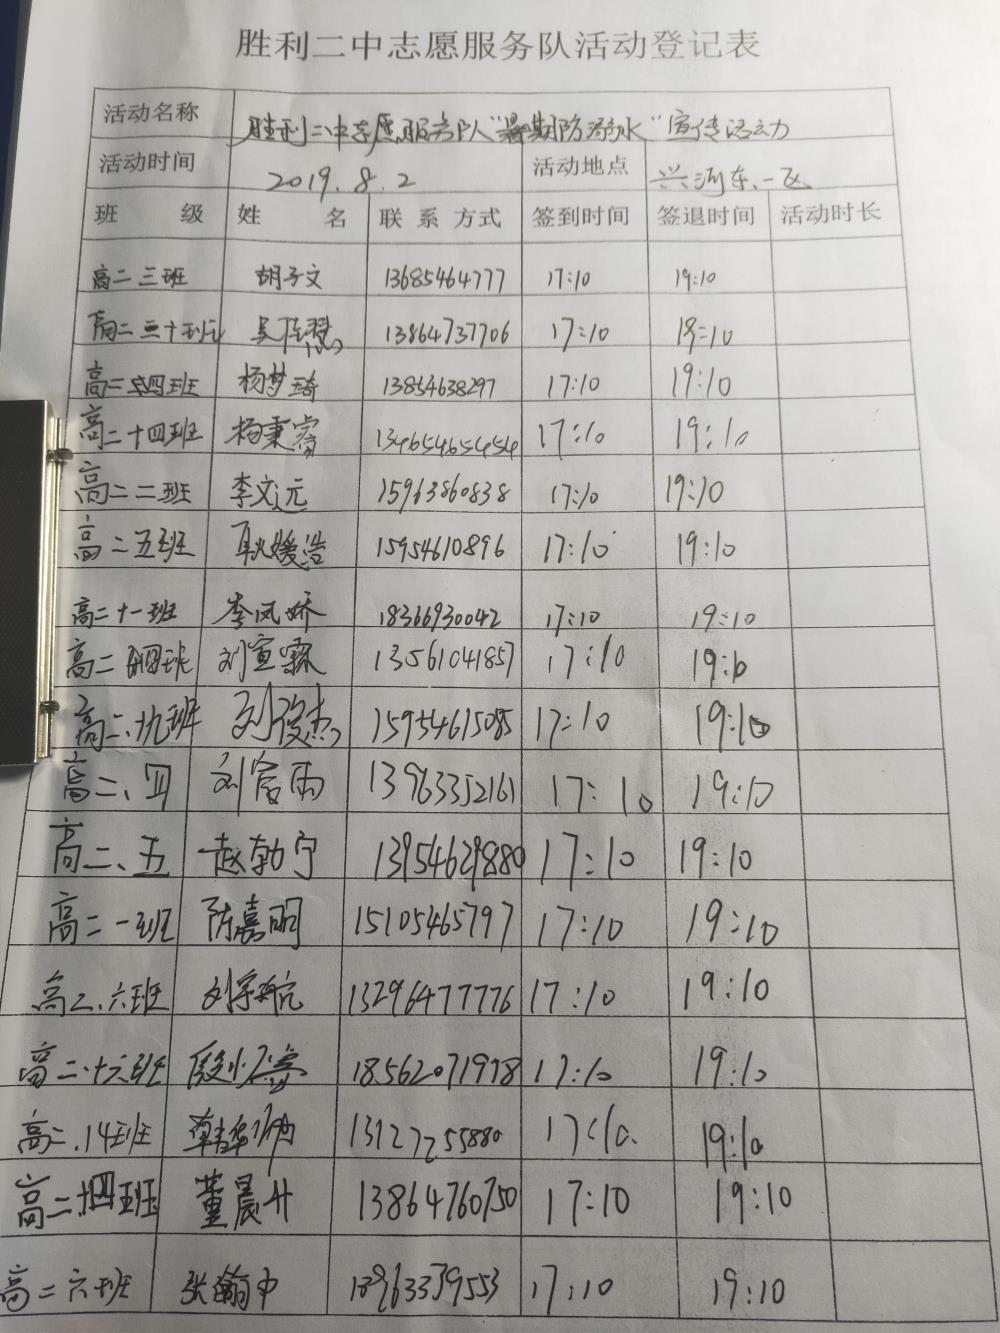 胜利二中志愿服务队活动登记表
活动名称 胜利二中志愿服务队"暑期防溺水"宣传活动
活动时间 2019.8.2 活动地点 兴河东一区
班 级 姓 名 联 系 方式 签到时间 签退时间 活动时长
高二三班 胡子文 13685464777 17:10 19:10
高二三十班 13864737706 17:10 19:10
高二四班 杨梦琦 13854638297 17:10 19:10
高二十四班 杨秉睿 17:10 19:10
高二二班 李文远 15963860838 17:10 19:10
高二五班 耿媛浩 15954610896 17:10 19:10
高二十一班 李凤娇 18366930042 17:10 19:10
高二四班 刘宣霖 13561041857 17:10 19:10
高二、十九班 刘俊杰 15954615085 17:10 19:10
高二、四 刘宫雨 13963352161 17:10 19:10
高二、五 赵勃宁 13954629880 17:10 19:10
高二一班 陈嘉明 15105465797 17:10 19:10
高二、六班 刘宇航 13296477776 17:10 19:10
高二、十六班 18562071978 17:10 19:10
高二.14班 13127255880 17:10. 19:10
高二十四班 董晨升 13864760750 17:10 19:10
高二六班 张瀚中 13963379553 17:10 19:10